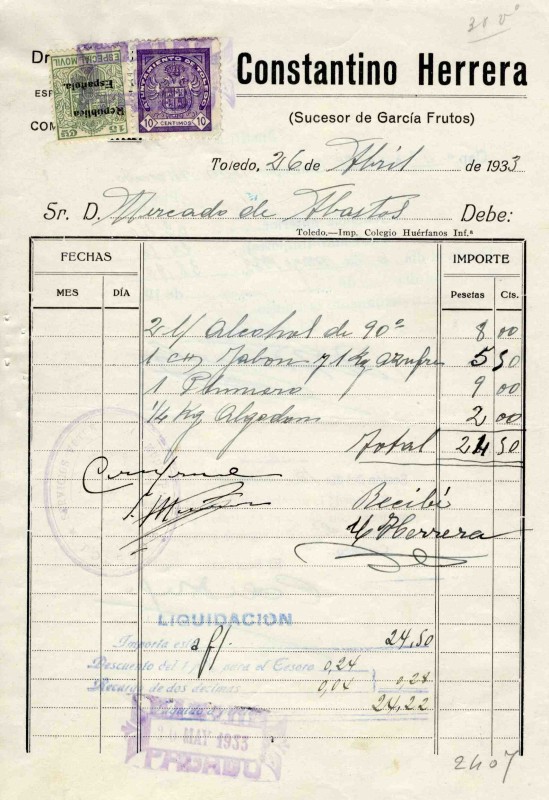 31 vº
Constantino Herrera
(Sucesor de García Frutos)
ESPECIAL MOVIL
República
Española.
15 Cs
AYUNTAMIENTO DE TOLEDO
10 CENTIMOS 10
Toledo, 26 de Abril de 1933
Sr. D. Mercado de Abastos Debe:
Toledo.—Imp. Colegio Huérfanos Inf.ª
FECHAS IMPORTE
MES DÍA Pesetas Cts.
2 l/ Alcohol de 90º 8 00
1 Jabon y 1 Kg azufre 5 50
1 Plumero 9 00
1/4 Kg Algodon 2 00
Total 24 50
Conforme
Recibí
C Herrera
LIQUIDACION
Importa esta 24,50
Descuento del para el Tesoro 0,24
Recargo de dos decimas 0,04 0,28
24,22
MAY 1933
PAGADO
2407